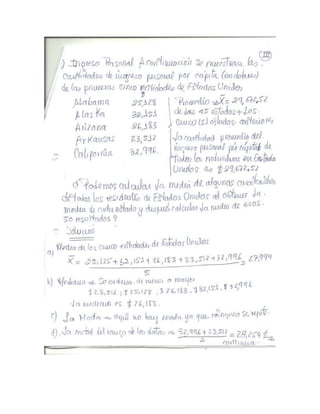 (III)
1) Ingreso Personal A continuación se muestran las
cantidades de ingreso personal por capita (en dolares)
de las primeras cinco entidades de Estados Unidos
Alabama 25,128 Promedio = X̄ = 29,672,52
Alaska 32,151 de las 45 estados + los
Arizona 26,183 cinco (5) estados anteriores
Arkansas 23,512 La cantidad promedio del
California 32,996. ingreso personal per cápita de
todos los individuos en Estados
Unidos es $ 29,672,52
¿Podemos calcular la media de algunas características
de todos los residentes de Estados Unidos al obtener la
media de cada estado y después calcular la media de esos
50 resultados?
= Solución
a) Media de los cinco entidades de Estados Unidos
X̄ = 25,125 + 32,151 + 26,183 + 23,512 + 32,996 = 27,994
5
b) Mediana → Se ordena de menor a mayor
$ 23,512, $ 25,128, $ 26,183, $ 32,151, $ 32,996
La mediana es $ 26,183.
c) La Moda → aquí no hay moda ya que ninguno se repite.
d) La mitad del rango de los datos → 32,996 + 23,512 = 28,254
2
continua